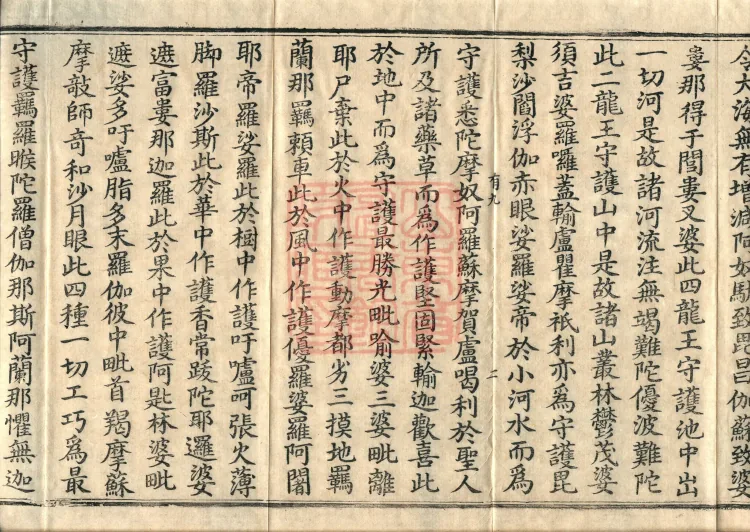 令大海無有增減阿奴駄致毘昌伽蘇致婆
婁那得于閻妻叉婆此四龍王守護池中出
一切河是故諸河流注無竭難陀優波難陀
此二龍王守護山中是故諸山叢林鬱茂婆
須吉婆羅囉蓋輸盧瞿摩祇利亦為守護毘
梨沙閻浮伽赤眼娑羅娑帝於小河水而為
有九 二
守護悉陀摩奴阿羅蘇摩賀盧喝利於聖人
所及諸藥草而為作護堅固緊輸迦歡喜此
於地中而為守護最勝光毗喻婆三婆毗離
耶尸棄此於火中作護動摩都劣三摸地羈
蘭那羈賴車此於風中作護優羅婆羅阿闍
耶帝羅娑羅此於樹中作護吁嚧呵張火薄
脚羅沙斯此於華中作護香常跋陀耶邏婆
遮富婁那迦羅此於果中作護阿匙林婆毗
遮娑多吁嚧脂多末羅伽彼中毗首羯摩蘇
摩敲師奇和沙月眼此四種一切工巧為最
守護羈羅睺陀羅僧伽那斯阿蘭那懼無迦